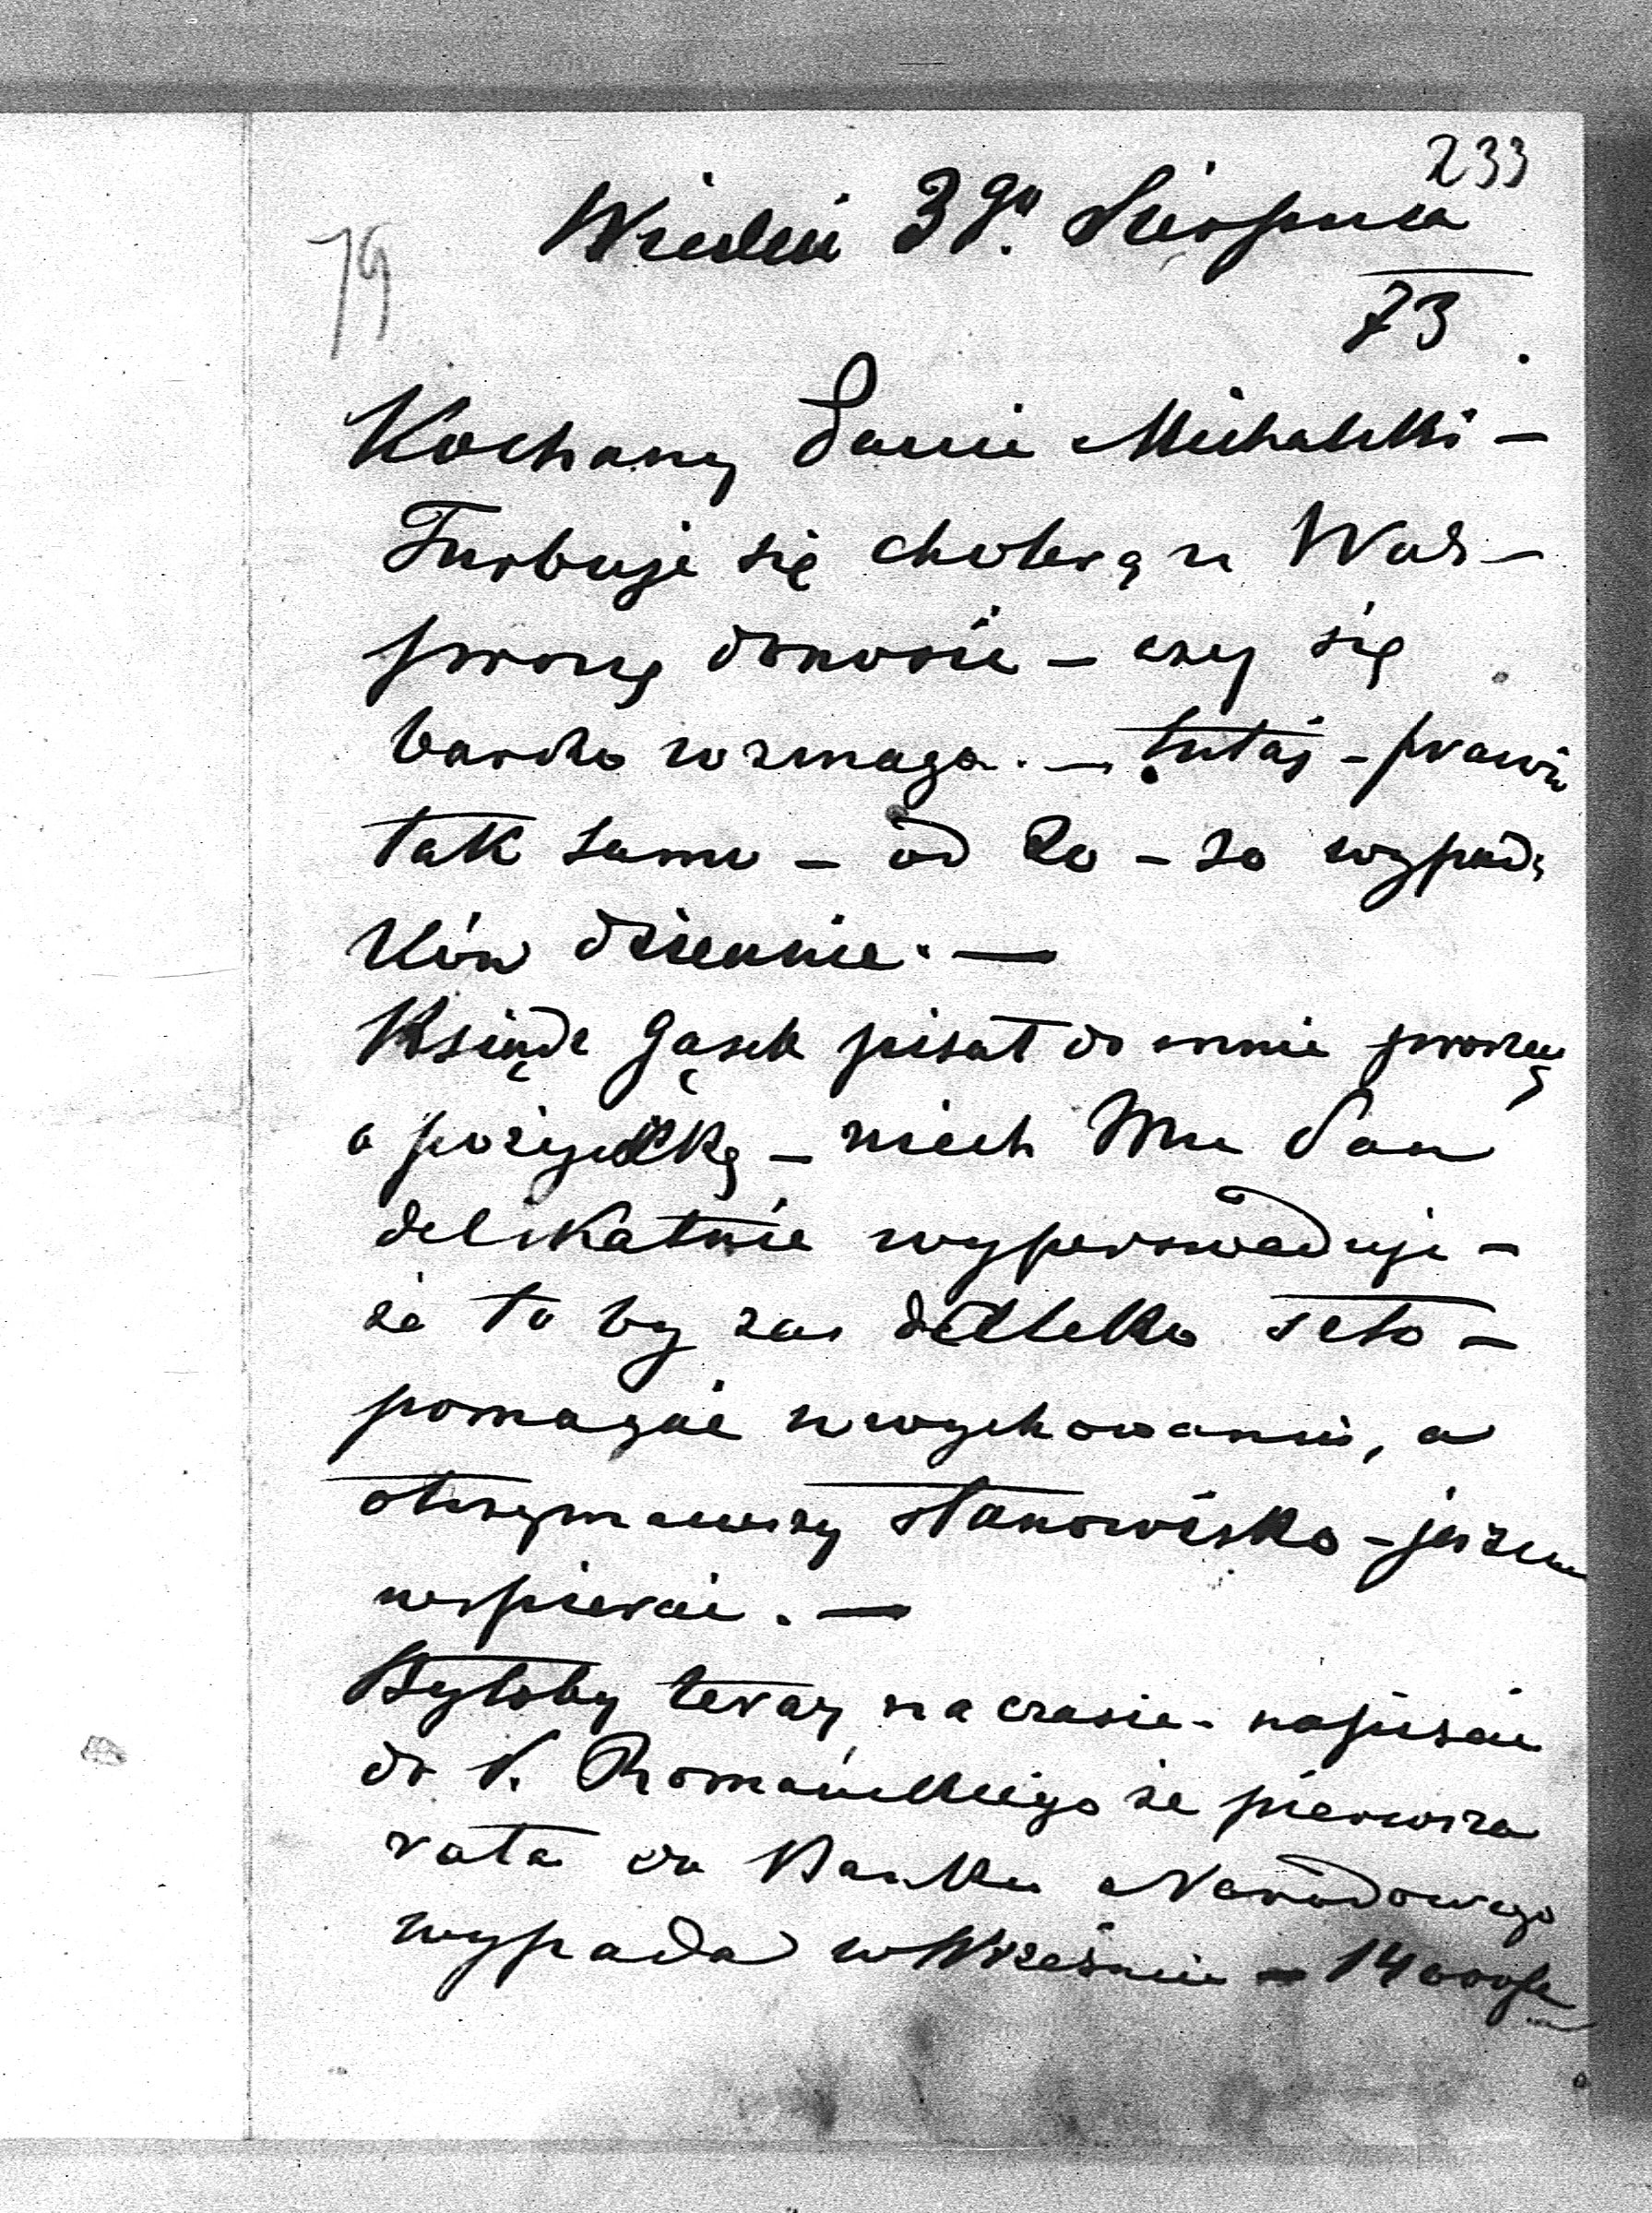 233
79
Wiedeń 3go. Sierpnia
73.
Kochany Panie Michalski –
Turbuje się cholerą u Was –
proszę donosić – czy się
bardzo wzmaga. – tutaj – prawie
tak samo – od 20 – 30 wypad¬
ków dziennie. –
Ksiądz Gąsek pisał do mnie prosząc
o pożyczkę – niech Mu Pan
delikatnie wyperswaduje –
że to by zadaleko szło –
pomagać w wychowaniu, a
otrzymawszy stanowisko – jeszcze
wspierać. –
Byłoby teraz na czasie – napisać
do P. Romańskiego że pierwsza
rata do Banku Narodowego
wypada w Wrześniu – 14000 fl